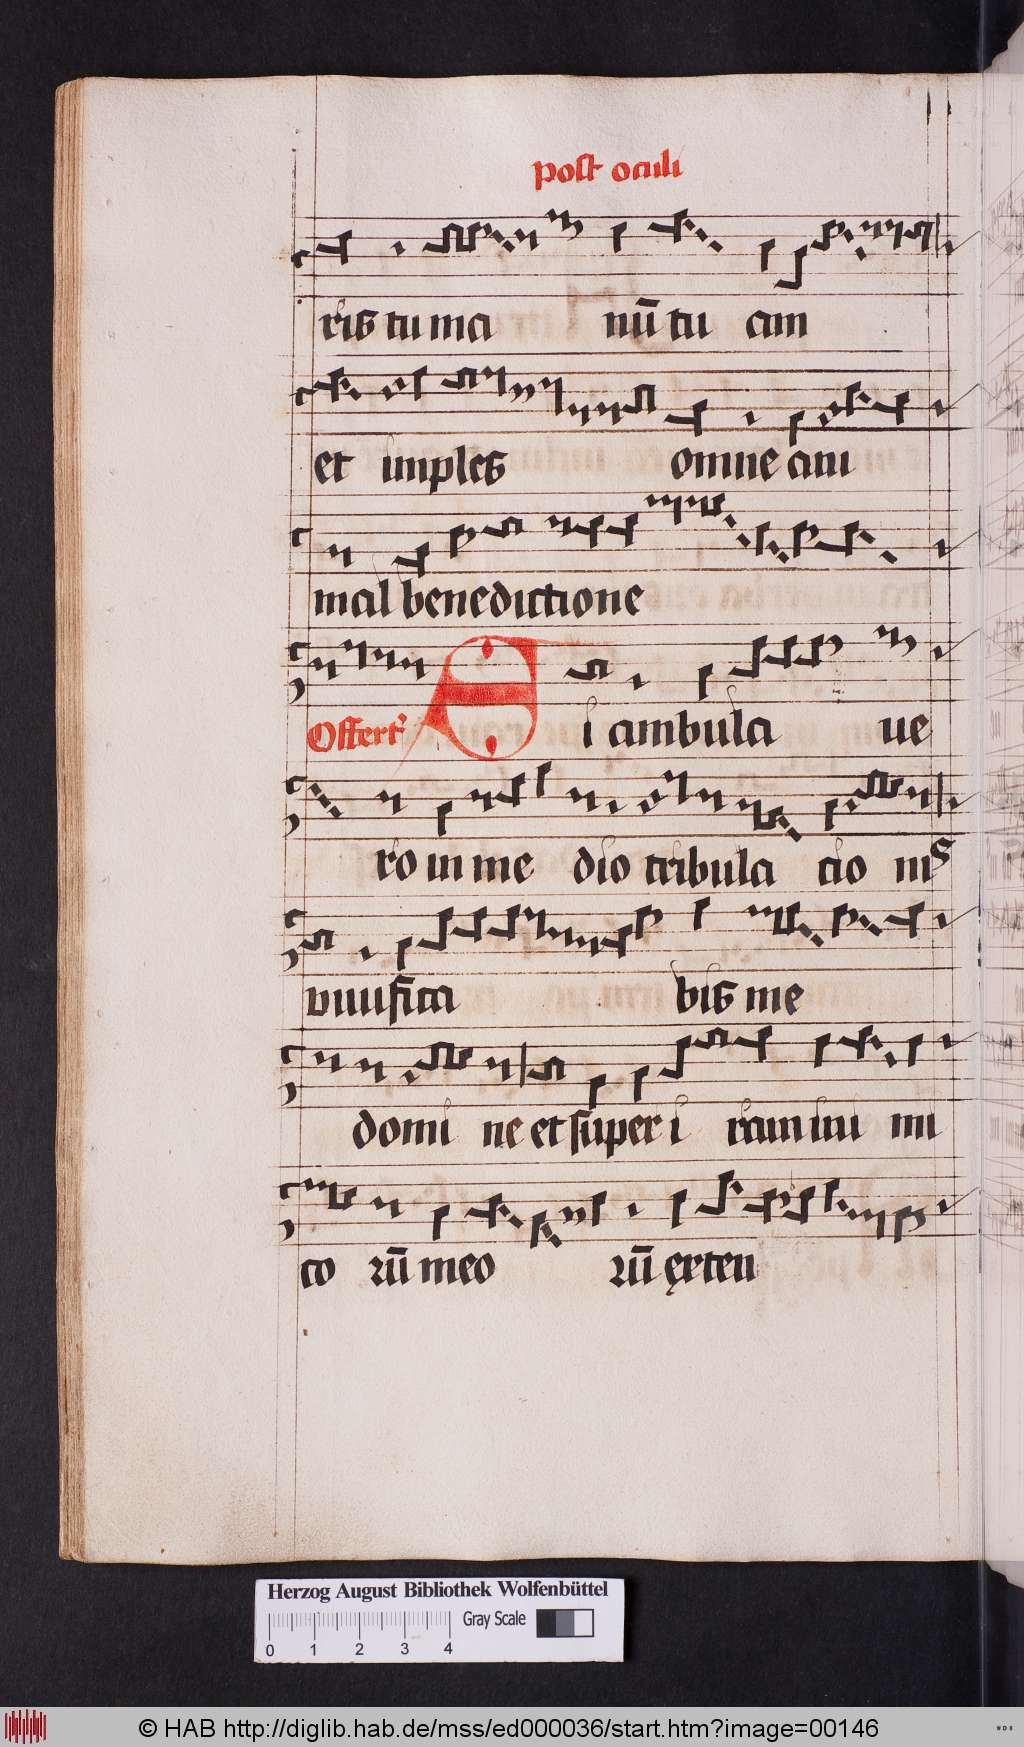 post oculi
ris tu ma nū tu am
et imples omne ani
mal benedictione
Offert' Si ambula ve
ro in me dio tribula cio nis
vivifica bis me
domi ne et super i ram ini mi
co rū meo rū exten
Herzog August Bibliothek Wolfenbüttel
Gray Scale
0 1 2 3 4
© HAB http://diglib.hab.de/mss/ed000036/start.htm?image=00146